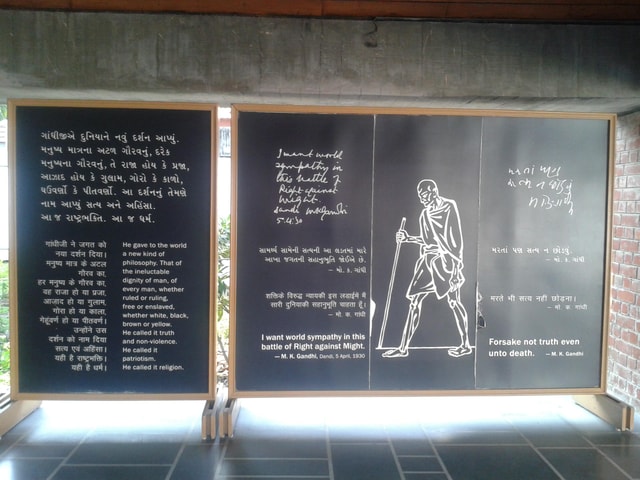 ગાંધીજીએ દુનિયાને નવું દર્શન આપ્યું,
મનુષ્ય માત્રના અટળ ગૌરવનું, દરેક
મનુષ્યના ગૌરવનું, તે રાજા હોય કે પ્રજા,
આઝાદ હોય કે ગુલામ, ગોરો કે કાળો,
ઘઉંવર્ણો કે પીતવર્ણો. આ દર્શનનું તેમણે
નામ આપ્યું સત્ય અને અહિંસા.
આ જ રાષ્ટ્રભક્તિ. આ જ ધર્મ.
गांधीजी ने जगत को
नया दर्शन दिया।
मनुष्य मात्र के अटल
गौरव का,
हर मनुष्य के गौरव का,
वह राजा हो या प्रजा,
आजाद हो या गुलाम,
गोरा हो या काला,
गेहूंवर्ण हो या पीतवर्ण।
उन्होंने उस
दर्शन को नाम दिया
सत्य एवं अहिंसा।
यही है राष्ट्रभक्ति।
यही है धर्म।
He gave to the world
a new kind of
philosophy. That of
the ineluctable
dignity of man, of
every man, whether
ruled or ruling,
free or enslaved,
whether white, black,
brown or yellow.
He called it truth
and non-violence.
He called it
patriotism.
He called it religion.
I want world
sympathy in
this battle of
Right against
Might.
Dandi MKGandhi
5.4.30
સામર્થ્ય સામેની સત્યની આ લડતમાં મારે
આખા જગતની સહાનુભૂતિ જોઈએ છે.
— મો. ક. ગાંધી
शक्तिके विरुद्ध न्यायकी इस लड़ाईमें मैं
सारी दुनियाकी सहानुभूति चाहता हूँ।
— मो. क. गांधी
I want world sympathy in this
battle of Right against Might.
— M. K. Gandhi, Dandi, 5 April, 1930
મરતાં પણ
સત્ય ન છોડવું
મરતાં પણ સત્ય ન છોડવું.
— મો. ક. ગાંધી
मरते भी सत्य नहीं छोडना।
— मो. क. गांधी
Forsake not truth even
unto death. — M. K. Gandhi